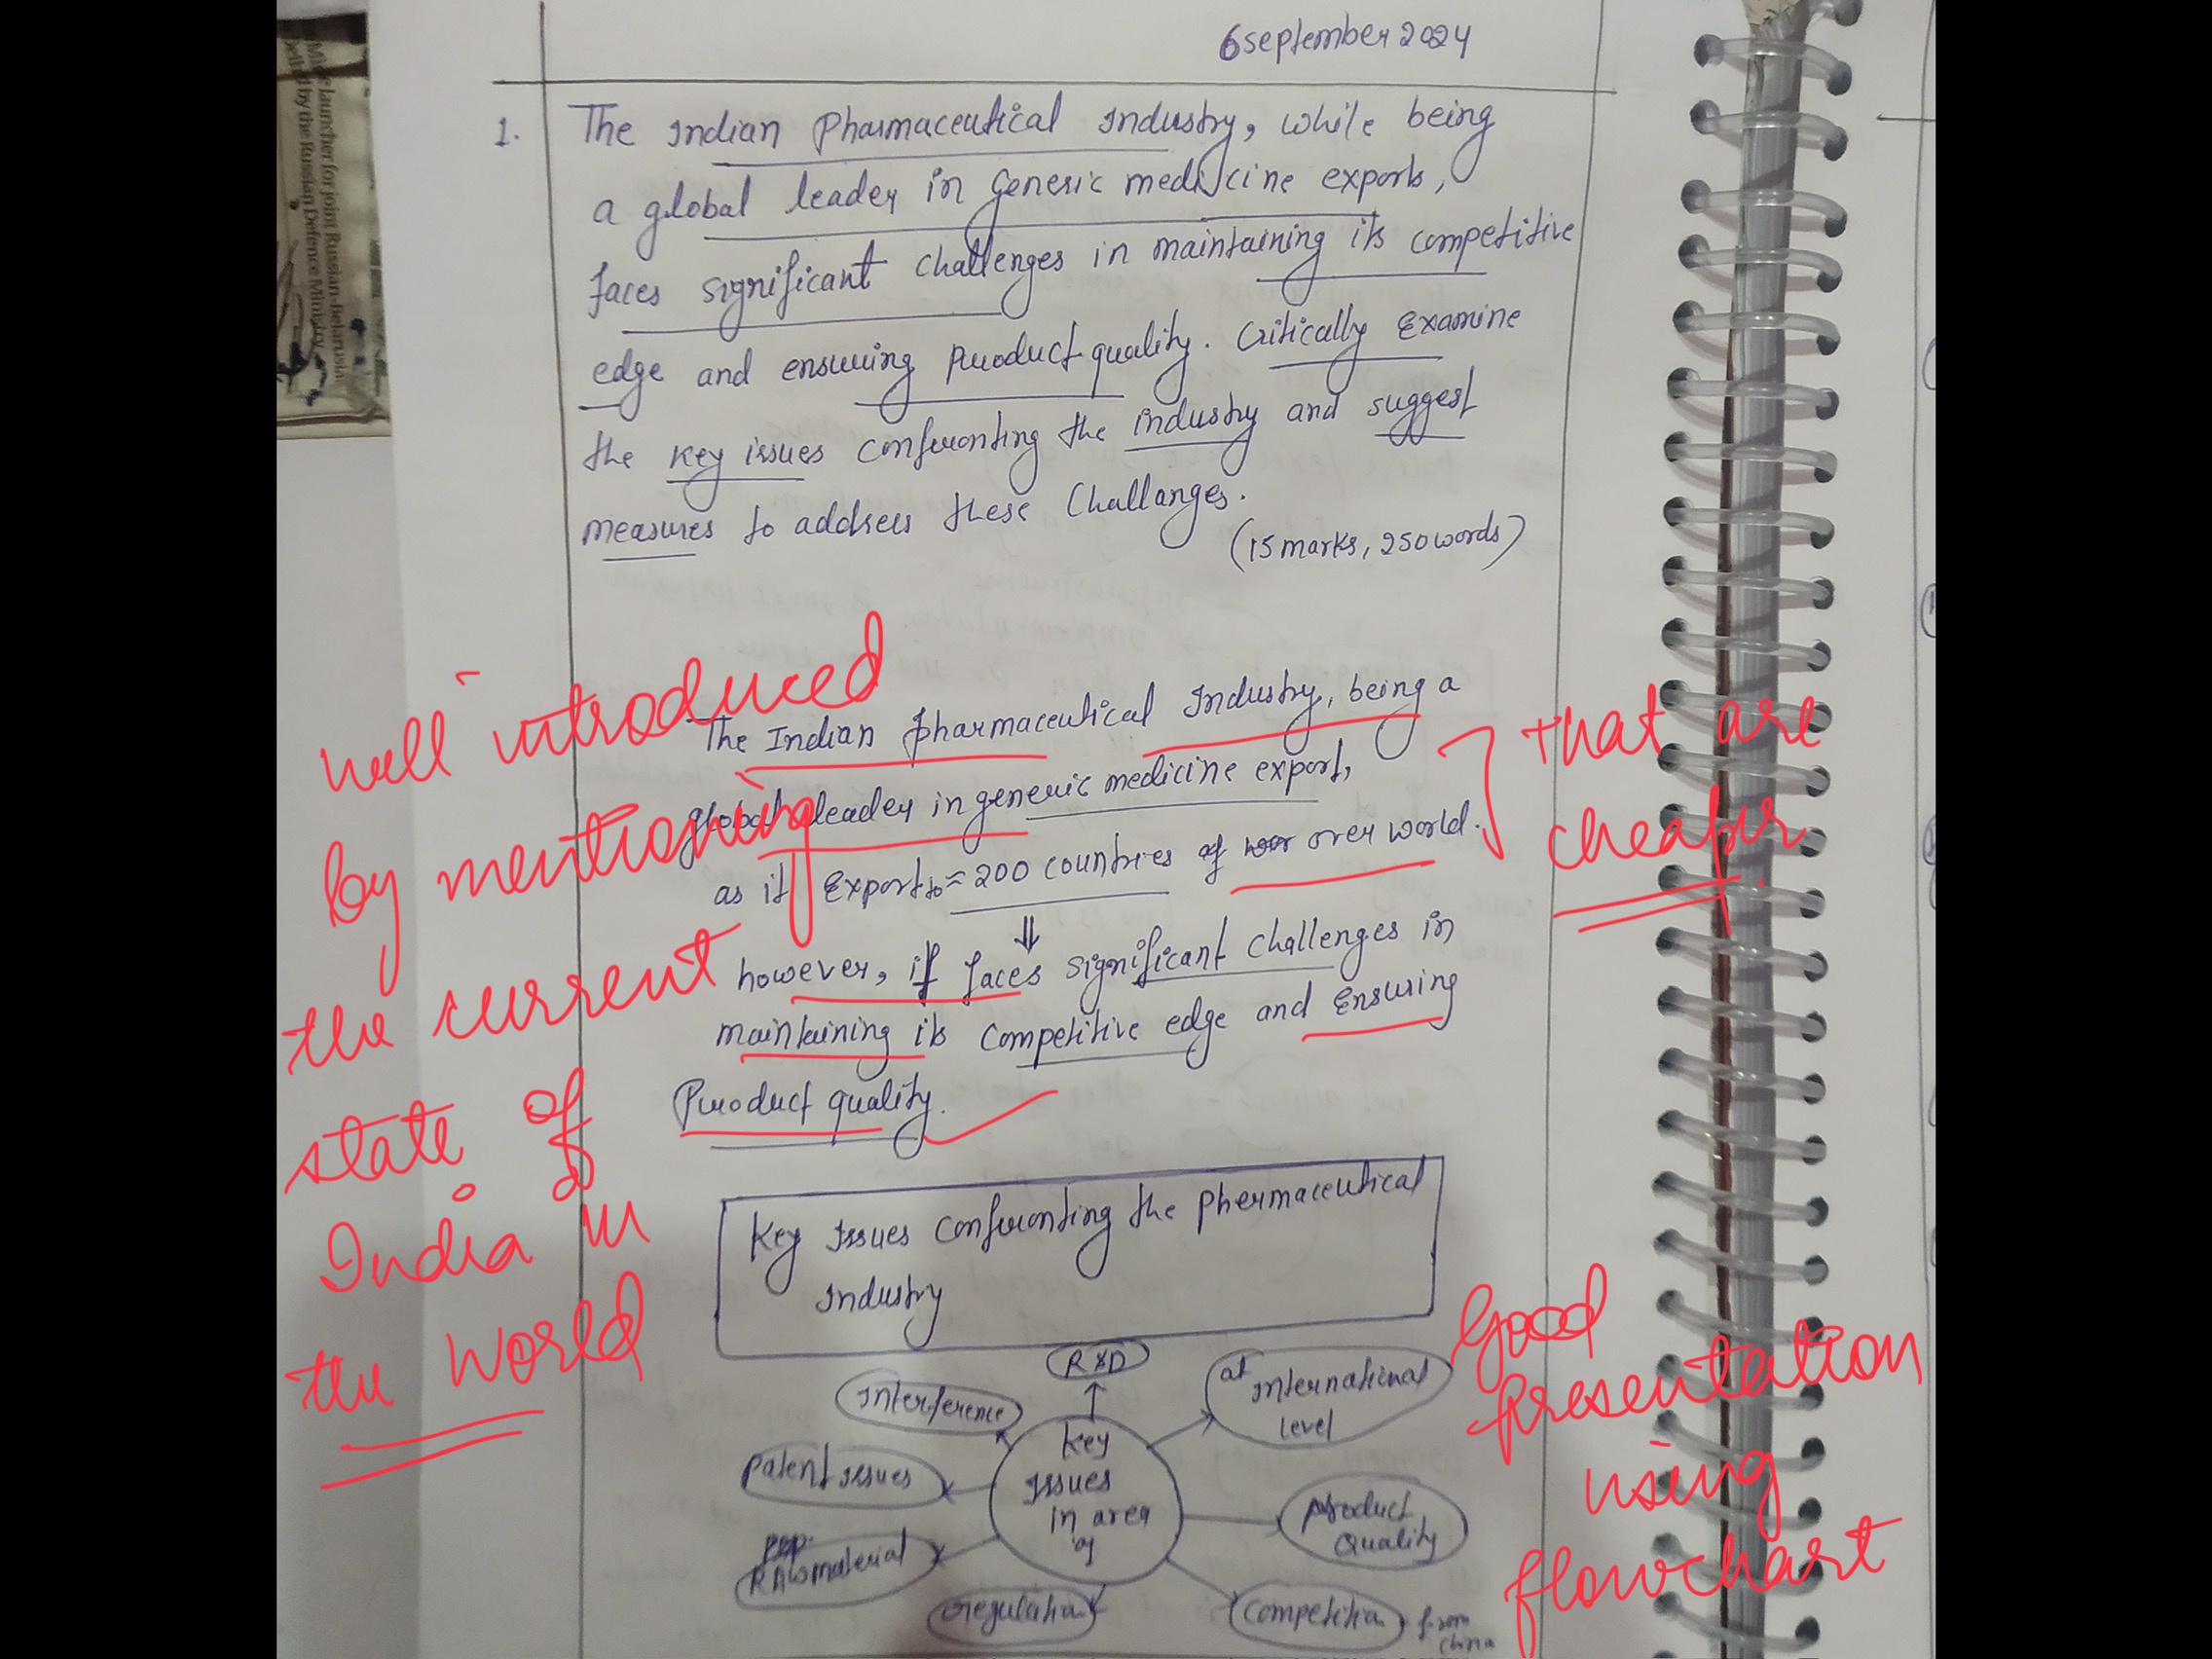 6 september 2024
1. The Indian Pharmaceutical Industry, while being
a global leader in Generic medicine exports,
faces significant challenges in maintaining its competitive
edge and ensuring product quality. Critically Examine
the key issues confronting the industry and suggest
measures to address these Challanges.
(15 marks, 250 words)
well introduced
by mentioning
the current
state of
India in
the world
The Indian pharmaceutical Industry, being a
global leader in generic medicine export,
as it Export to ≈ 200 countries of over world.
that are
cheaper
⇓
however, it faces significant challenges in
maintaining its competitive edge and Ensuring
Product quality.
Key Issues Confronting the Phermaceutical
Industry
Good
presentation
using
flowchart
Key
Issues
in area
of
R&D
at
International
level
Product
Quality
Competition from
China
regulation
RAw material
Patent issues
Interference
Missile launcher for joint Russian-Belarusia
by the Russian Defence Ministry